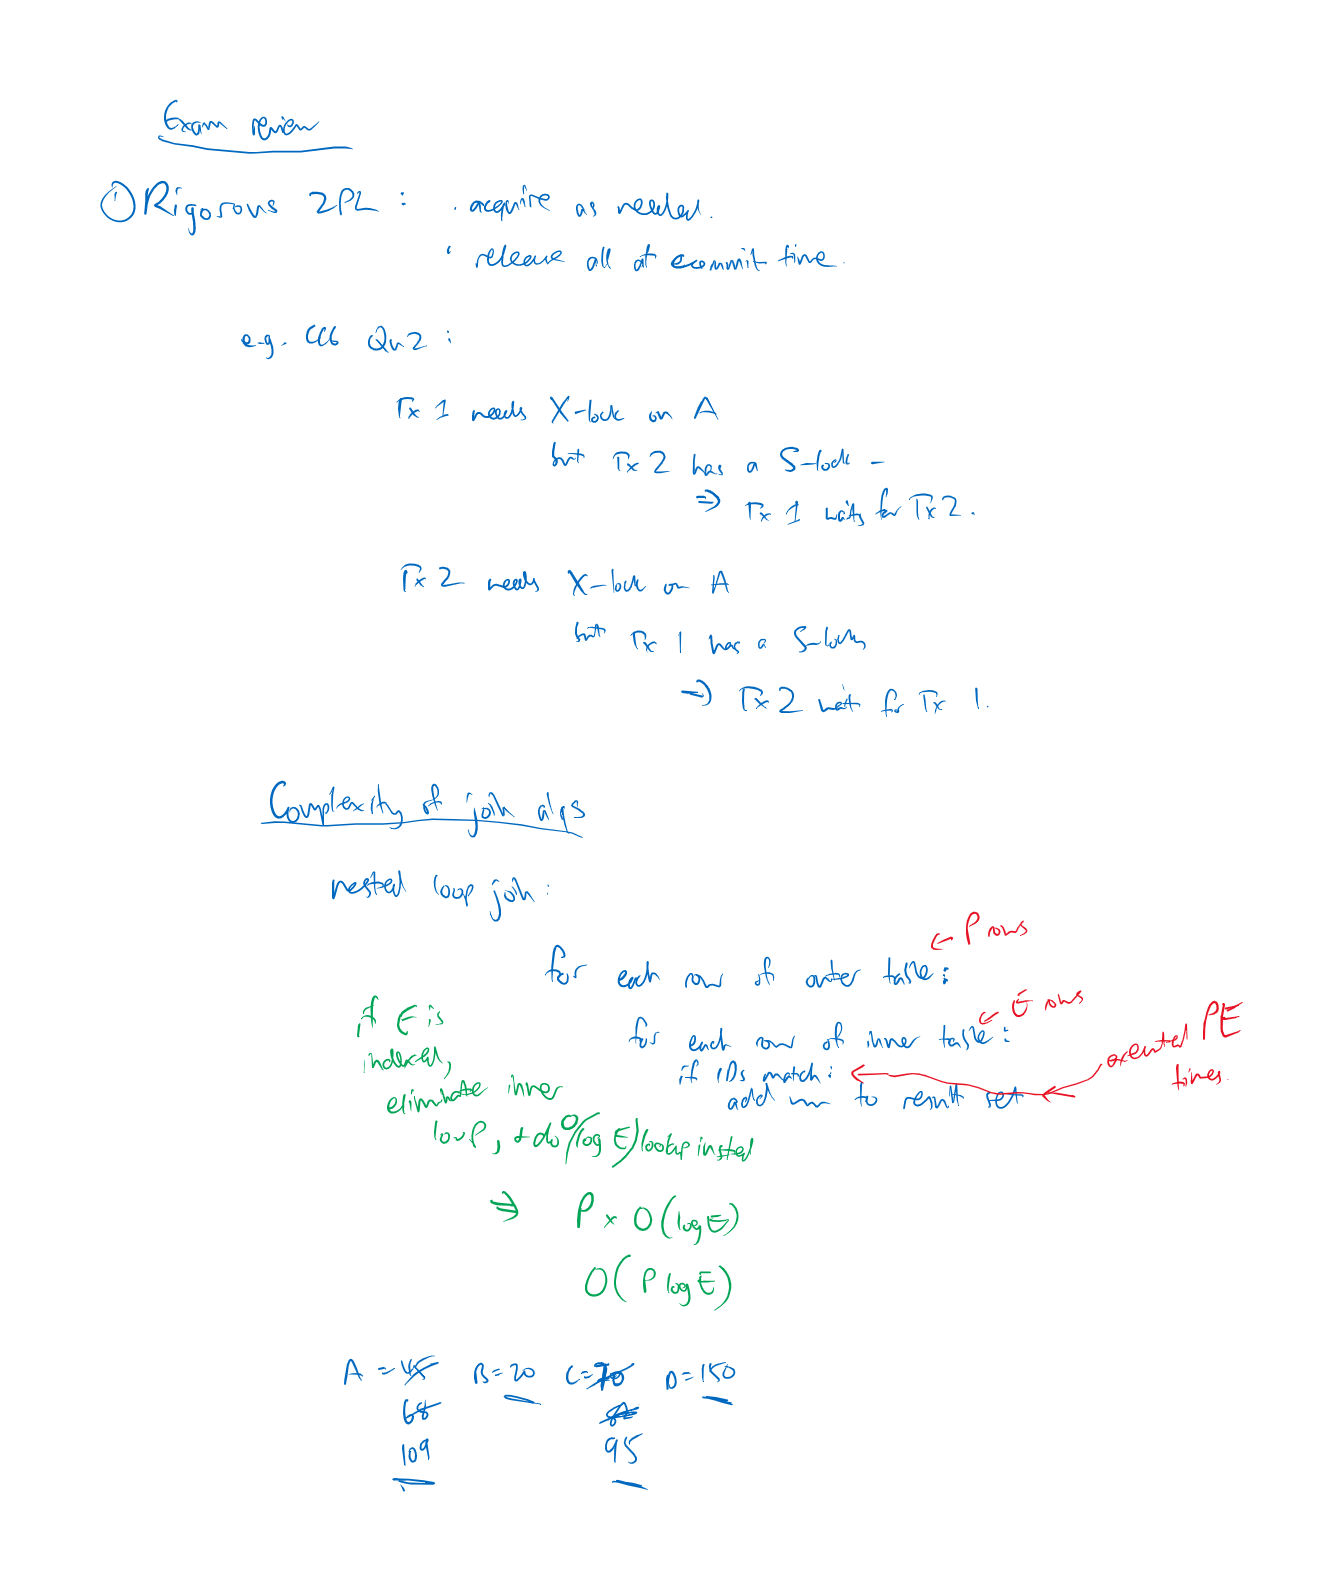 Exam review
① Rigorous 2PL : . acquire as needed.
. release all at commit time.
e.g. CC6 Qn2 :
Tx 1 needs X-lock on A
but Tx 2 has a S-lock -
⇒ Tx 1 waits for Tx 2.
Tx 2 needs X-lock on A
but Tx 1 has a S-lock
⇒ Tx 2 wait for Tx 1.
Complexity of join algs
nested loop join :
← P rows
for each row of outer table :
← E rows
for each row of inner table :
if IDs match :
add row to result set
executed PE
times.
if E is
indexed,
eliminate inner
loop, + do O(log E) lookup instead
⇒ P × O(log E)
O(P log E)
A = 45 B = 20 C = 70 D = 150
68
109 95